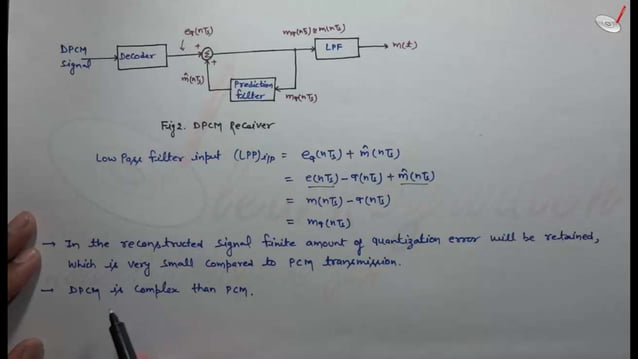 e_q(nTs)
m_q(nTs) ≅ m(nTs)
DPCM Signal
Decoder
+
Σ
+
LPF
m(t)
m̂(nTs)
Prediction filter
m_q(nTs)
Fig 2. DPCM Receiver
Low Pass filter input (LPF)i/p = e_q(nTs) + m̂(nTs)
= e(nTs) - q(nTs) + m̂(nTs)
= m(nTs) - q(nTs)
= m_q(nTs)
→ In the reconstructed signal finite amount of quantization error will be retained,
which is very small compared to PCM transmission.
→ DPCM is complex than PCM.